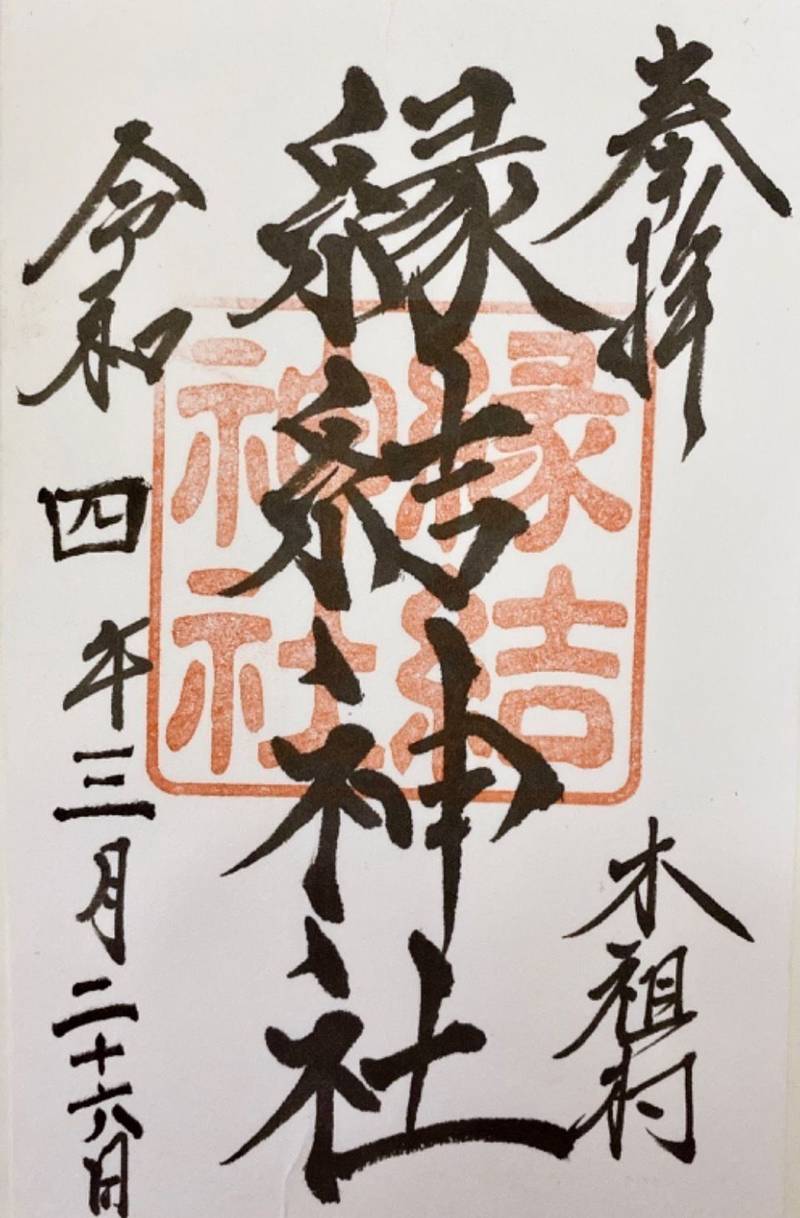 奉拝
木祖村
縁結神社
縁結
神社
令和四年三月二十六日